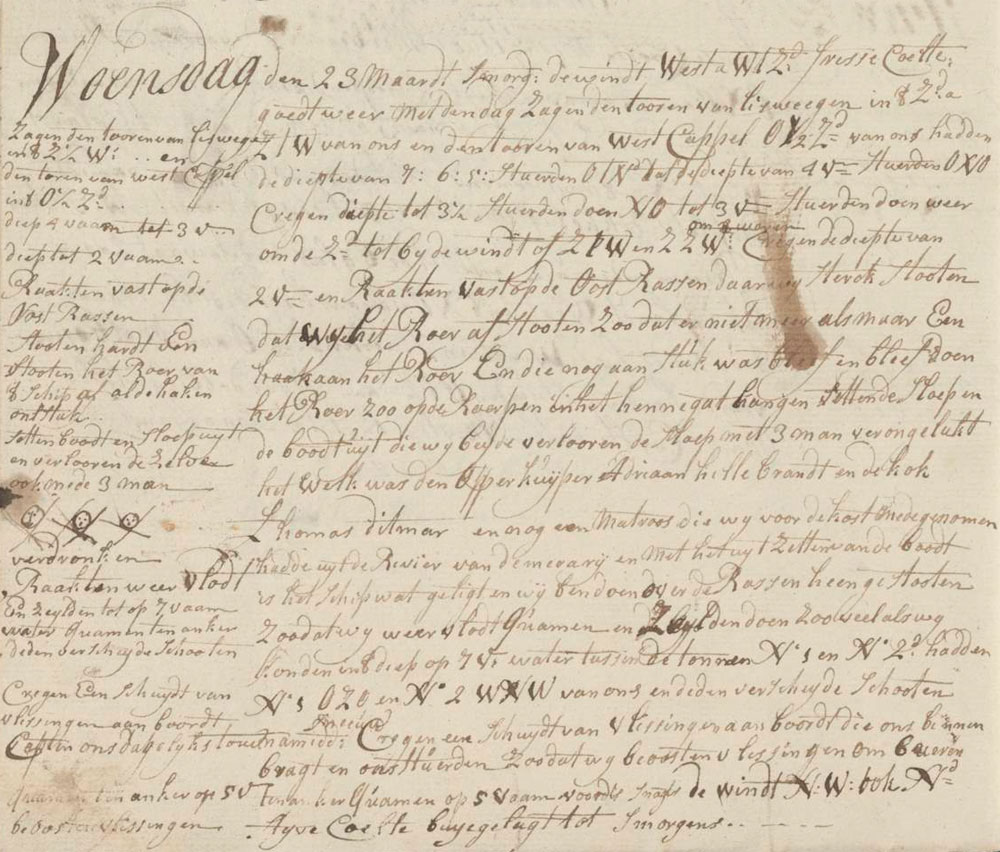 Woensdag den 23 Maardt Smorg: de windt West a Wt Zd fresse Coelte,
goedt weer met den dag Zagen den tooren van lisweegen in 8 Zd a
Z 1 W van ons en den tooren van West Cappel O 1/2 Zd van ons hadden
de diepte van 7: 6: 5: Stuerden O 1 Nd tot de diepte van 4 v= Stuerden ONO
Cregen diepte tot 3½ Stuerden doen NO tot 3 v= Stuerden doen weer
om de Z= tot by de windt of Z 1 W en ZZW: Cregen de diepte van
2 v= en Raakten vast op de Oost Rassen daar wy sterck Stooten
dat wy het Roer af Stooten Zoo dat er niet meer als maar Een
haak aan het Roer En die nog aan Stuk was bleef en bleef doen
het Roer zoo op de Kaarpen in het hennegat hangen settende Sloep en
de boodt uyt die wy beyde verlooren de Sloep met 3 man verongelukt
het Welk was den Opper Kuyper Adriaan hille brandt en de kok
Thomas ditmar en nog een Matroos die wy voor de kost medegenomen
hadde uyt de Revier van demerary en met het uyt Zetten van de boodt
is het Schip wat geligt en wy ben doen over de Rassen heen gestooten
Zoo dat wy weer vlodt Quamen en Zeylden doen Zoo veel als wy
konden in 8 diep op 7 v: water tussen de tonnen No 1 en No 2d hadden
No 1 OZO en No 2 WNW van ons en deden verscheyde Schooten
namidd: Cregen een Schuydt van vlissingen aan boordt die ons binnen
bragt en ons Stuerden Zoo dat wy beoosten vlissingen om
ten anker Quamen op 5 vaam voordts Snags de windt N: W: ook Nd
Styve Coelte buyegelugt tot Smorgens
Zagen den tooren van lisweege
in 8 Z½ W: .. en
den toren van west Cappel
in 8 O½ Zd
diep 4 vaam tot 3 v
diep tot 2 vaam
Raakten vast op de
Oost Rassen
Stooten hardt Een
Stooten het Roer van
8 Schip af al de haken
ontstuk
setten boodt en Sloep uyt
en verlooren de Zelve
ook mede 3 man
verdronken
Raakten weer vlodt
En Zeylden tot op 7 vaam
water Quamen ten anker
deden verscheyde Schooten
Cregen Een Schuydt van
vlissingen aan boordt,
Quamen ten anker op 5 v
beoosten vlissingen